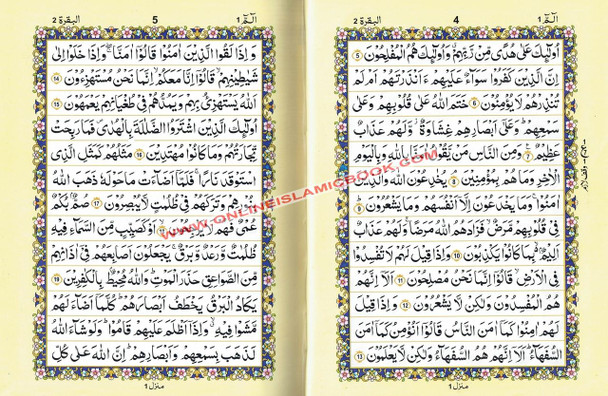 الٓمّٓ ١
4
البقرة ٢
اُولٰٓئِكَ عَلٰى هُدًى مِّنْ رَّبِّهِمْ وَاُولٰٓئِكَ هُمُ الْمُفْلِحُوْنَ ٥
اِنَّ الَّذِيْنَ كَفَرُوْا سَوَآءٌ عَلَيْهِمْ ءَاَنْذَرْتَهُمْ اَمْ لَمْ
تُنْذِرْهُمْ لَا يُؤْمِنُوْنَ ٦ خَتَمَ اللّٰهُ عَلٰى قُلُوْبِهِمْ وَعَلٰى
سَمْعِهِمْ وَعَلٰٓى اَبْصَارِهِمْ غِشَاوَةٌ وَّلَهُمْ عَذَابٌ
عَظِيْمٌ ٧ وَمِنَ النَّاسِ مَنْ يَّقُوْلُ اٰمَنَّا بِاللّٰهِ وَبِالْيَوْمِ
الْاٰخِرِ وَمَا هُمْ بِمُؤْمِنِيْنَ ٨ يُخٰدِعُوْنَ اللّٰهَ وَالَّذِيْنَ
اٰمَنُوْا وَمَا يَخْدَعُوْنَ اِلَّآ اَنْفُسَهُمْ وَمَا يَشْعُرُوْنَ ٩
فِيْ قُلُوْبِهِمْ مَّرَضٌ فَزَادَهُمُ اللّٰهُ مَرَضًا وَلَهُمْ عَذَابٌ
اَلِيْمٌ بِمَا كَانُوْا يَكْذِبُوْنَ ١٠ وَاِذَا قِيْلَ لَهُمْ لَا تُفْسِدُوْا
فِي الْاَرْضِ قَالُوْٓا اِنَّمَا نَحْنُ مُصْلِحُوْنَ ١١ اَلَآ اِنَّهُمْ
هُمُ الْمُفْسِدُوْنَ وَلٰكِنْ لَّا يَشْعُرُوْنَ ١٢ وَاِذَا قِيْلَ
لَهُمْ اٰمِنُوْا كَمَآ اٰمَنَ النَّاسُ قَالُوْٓا اَنُؤْمِنُ كَمَآ اٰمَنَ
السُّفَهَآءُ اَلَآ اِنَّهُمْ هُمُ السُّفَهَآءُ وَلٰكِنْ لَّا يَعْلَمُوْنَ ١٣
منزل ١
الٓمّٓ ١
5
البقرة ٢
وَاِذَا لَقُوا الَّذِيْنَ اٰمَنُوْا قَالُوْٓا اٰمَنَّا وَاِذَا خَلَوْا اِلٰى
شَيٰطِيْنِهِمْ قَالُوْٓا اِنَّا مَعَكُمْ اِنَّمَا نَحْنُ مُسْتَهْزِءُوْنَ ١٤
اَللّٰهُ يَسْتَهْزِئُ بِهِمْ وَيَمُدُّهُمْ فِيْ طُغْيَانِهِمْ يَعْمَهُوْنَ ١٥
اُولٰٓئِكَ الَّذِيْنَ اشْتَرَوُا الضَّلٰلَةَ بِالْهُدٰى فَمَا رَبِحَتْ
تِّجَارَتُهُمْ وَمَا كَانُوْا مُهْتَدِيْنَ ١٦ مَثَلُهُمْ كَمَثَلِ الَّذِي
اسْتَوْقَدَ نَارًا فَلَمَّآ اَضَآءَتْ مَا حَوْلَهٗ ذَهَبَ اللّٰهُ
بِنُوْرِهِمْ وَتَرَكَهُمْ فِيْ ظُلُمٰتٍ لَّا يُبْصِرُوْنَ ١٧ صُمٌّۢ بُكْمٌ
عُمْيٌ فَهُمْ لَا يَرْجِعُوْنَ ١٨ اَوْ كَصَيِّبٍ مِّنَ السَّمَآءِ فِيْهِ
ظُلُمٰتٌ وَّرَعْدٌ وَّبَرْقٌ يَجْعَلُوْنَ اَصَابِعَهُمْ فِيْٓ اٰذَانِهِمْ
مِّنَ الصَّوَاعِقِ حَذَرَ الْمَوْتِ وَاللّٰهُ مُحِيْطٌۢ بِالْكٰفِرِيْنَ ١٩
يَكَادُ الْبَرْقُ يَخْطَفُ اَبْصَارَهُمْ كُلَّمَآ اَضَآءَ لَهُمْ
مَّشَوْا فِيْهِ وَاِذَآ اَظْلَمَ عَلَيْهِمْ قَامُوْا وَلَوْ شَآءَ اللّٰهُ
لَذَهَبَ بِسَمْعِهِمْ وَاَبْصَارِهِمْ اِنَّ اللّٰهَ عَلٰى كُلِّ
منزل ١
WWW.ONLINEISLAMICBOOK.COM